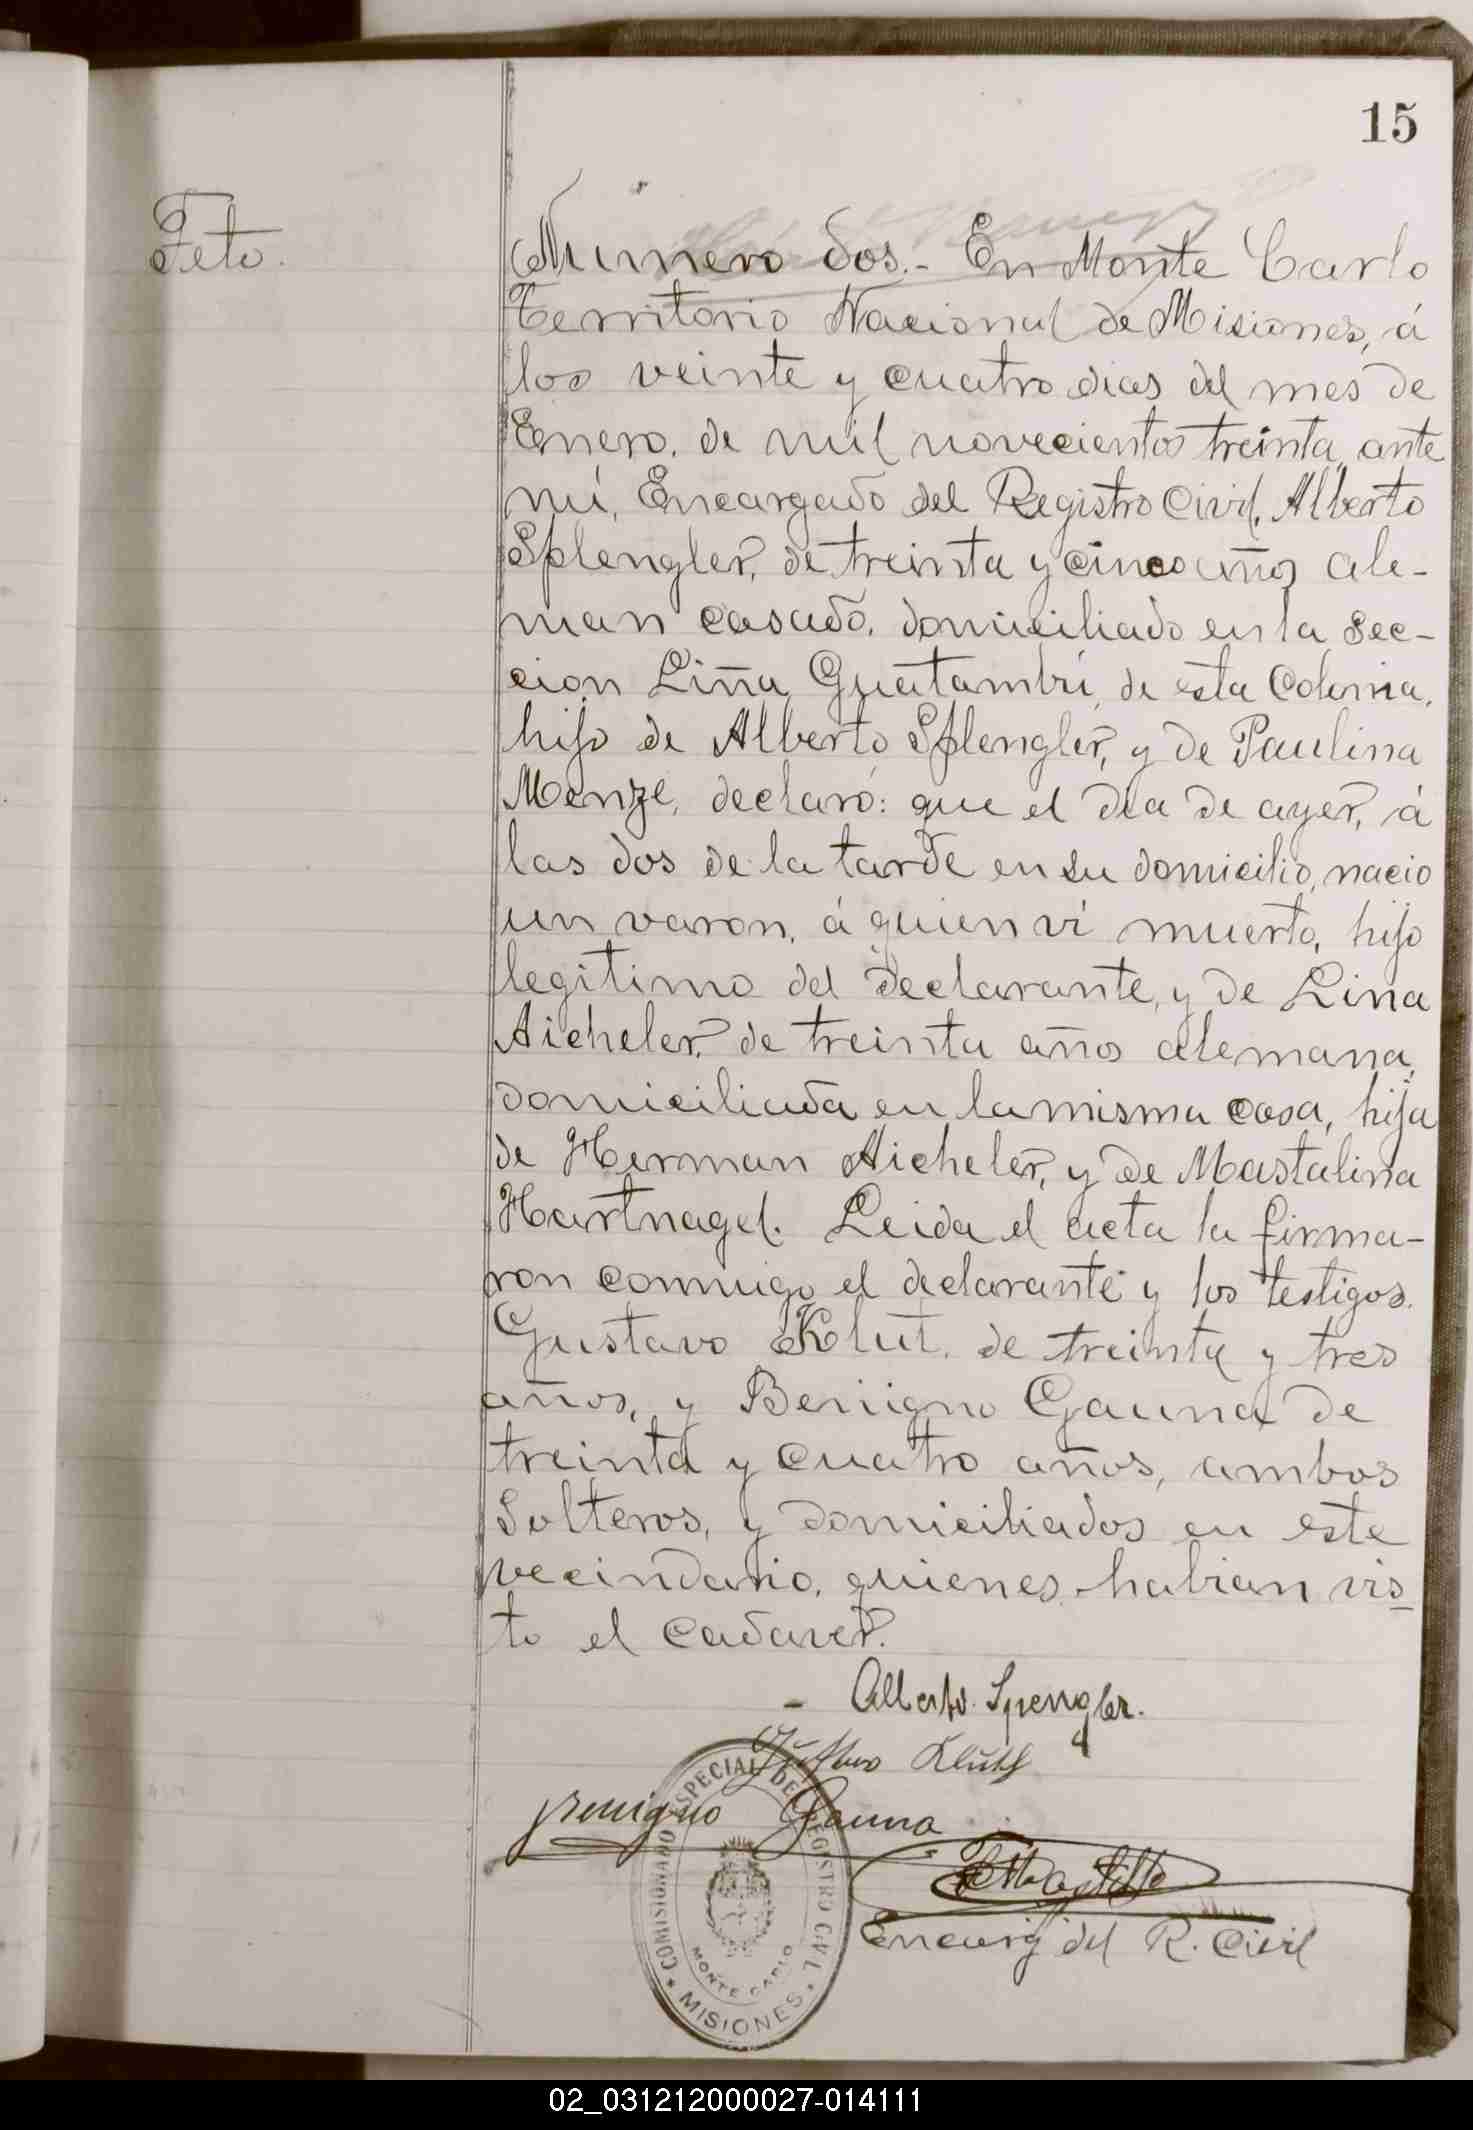 15
Feto.
Número dos.- En Monte Carlo
Territorio Nacional de Misiones, á
los veinte y cuatro dias del mes de
Enero. de mil novecientos treinta, ante
mí, Encargado del Registro Civil, Alberto
Splengler, de treinta y cinco años ale-
man casado. domiciliado en la sec-
cion Liña Guatambú, de esta Colonia,
hijo de Alberto Splengler, y de Paulina
Menze, declaró: que el dia de ayer, á
las dos de la tarde en su domicilio, nacio
un varon, á quien ví muerto, hijo
legitimo del declarante, y de Lina
Aicheler, de treinta años alemana,
domiciliada en la misma casa, hija
de Herman Aicheler, y de Mastalina
Hartnagel. Leida el acta la firma-
ron conmigo el declarante y los testigos.
Gustavo Klut. de treinta y tres
años, y Benigno Gauna de
treinta y cuatro años, ambos
Solteros, y domiciliados en este
vecindario, quienes habian vis-
to el cadaver.
- Alberto Spengler.
Gustavo
Benigno Gauna
Encarg del R. Civil
COMISIONADO ESPECIAL DEL REGISTRO CIVIL
MONTE CARLO
* MISIONES *
02_031212000027-014111